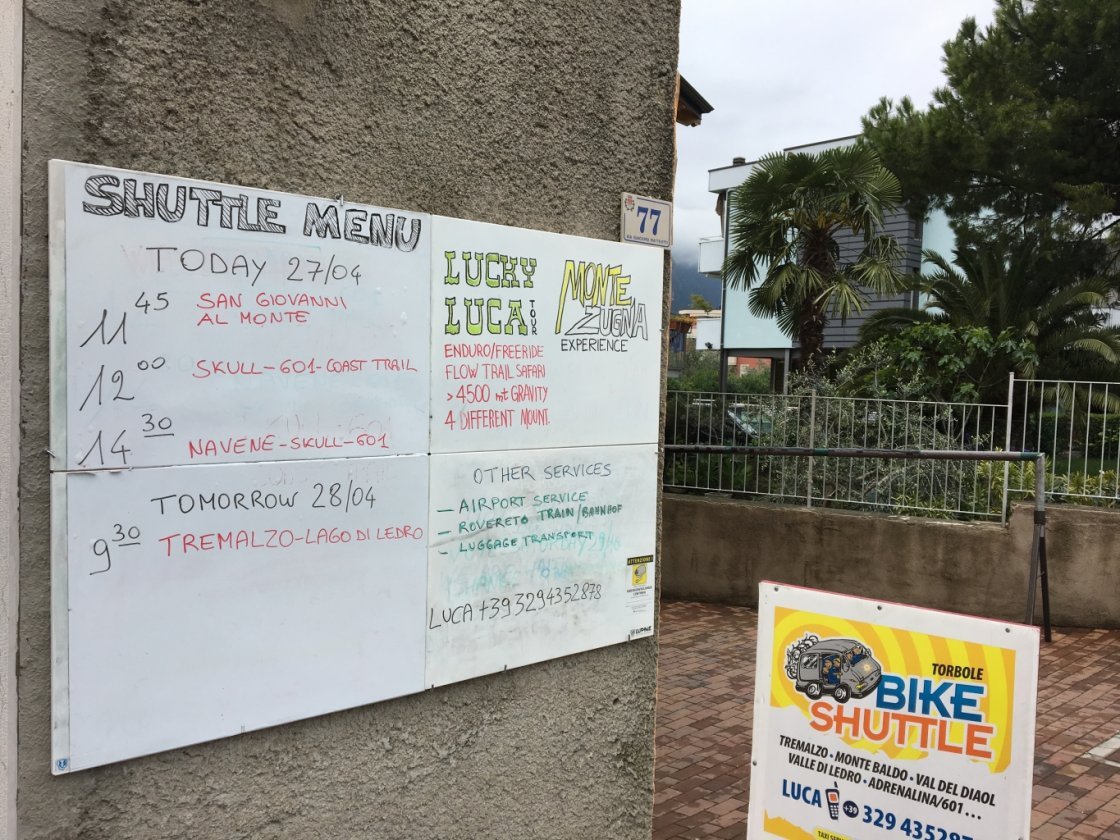 SHUTTLE MENU
TODAY 27/04
11 45 SAN GIOVANNI
AL MONTE
12 00 SKULL-601-COAST TRAIL
14 30 NAVENE-SKULL-601
TOMORROW 28/04
9 30 TREMALZO-LAGO DI LEDRO
LUCKY
LUCA TOUR
ENDURO/FREERIDE
FLOW TRAIL SAFARI
>4500 mt GRAVITY
4 DIFFERENT MOUNT.
MONTE
ZUGNA
EXPERIENCE
OTHER SERVICES
- AIRPORT SERVICE
- ROVERETO TRAIN/BAHNHOF
- LUGGAGE TRANSPORT
LUCA +39 3294352878
ATTENZIONE
77
TORBOLE
BIKE
SHUTTLE
TREMALZO • MONTE BALDO • VAL DEL DIAOL
VALLE DI LEDRO • ADRENALINA/601 ...
LUCA +39 329 435287